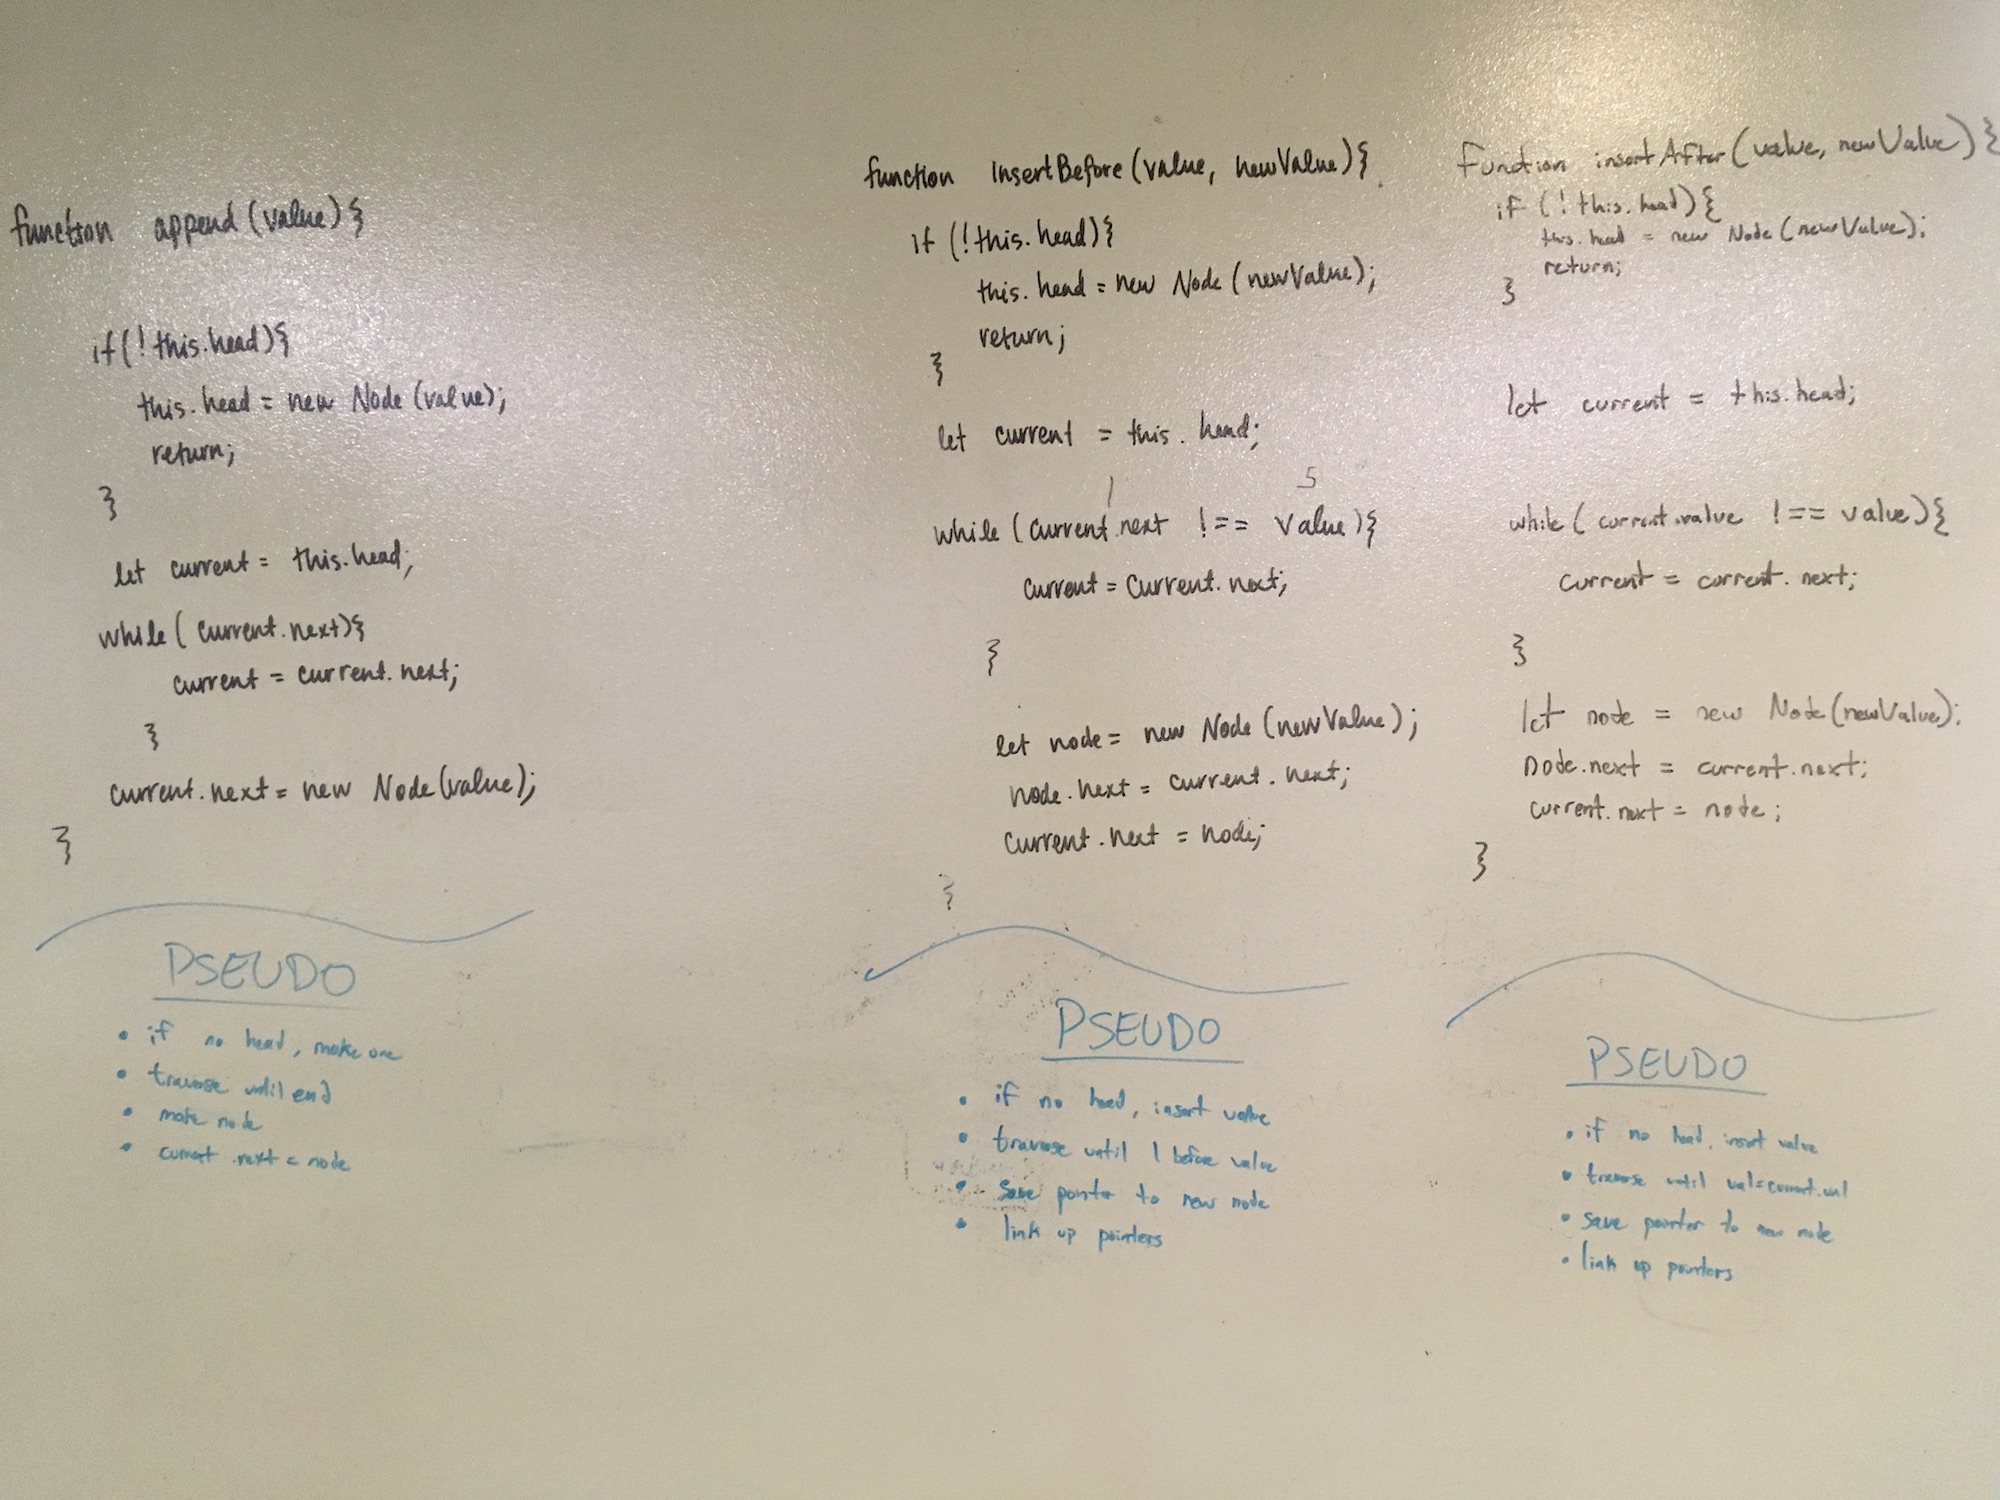 function append(value){
if(!this.head){
this.head = new Node(value);
return;
}
let current = this.head;
while(current.next){
current = current.next;
}
current.next = new Node(value);
}
PSEUDO
• if no head, make one
• traverse until end
• make node
• current.next = node
function insertBefore(value, newValue){
if (!this.head){
this.head = new Node(newValue);
return;
}
let current = this.head;
1 5
while(current.next !== value){
current = current.next;
}
let node = new Node(newValue);
node.next = current.next;
current.next = node;
}
PSEUDO
• if no head, insert value
• traverse until 1 before value
• save pointer to new node
• link up pointers
function insertAfter(value, newValue){
if (!this.head){
this.head = new Node(newValue);
return;
}
let current = this.head;
while(current.value !== value){
current = current.next;
}
let node = new Node(newValue);
node.next = current.next;
current.next = node;
}
PSEUDO
• if no head, insert value
• traverse until val=current.val
• save pointer to new node
• link up pointers